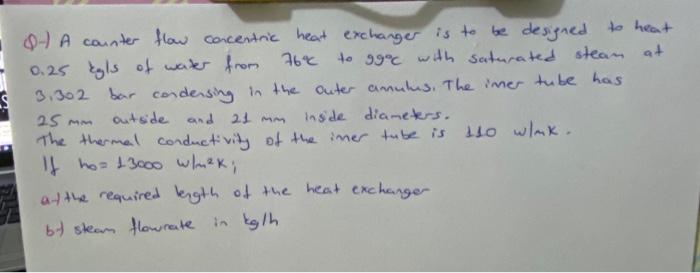 Q-) A counter flow concentric heat exchanger is to be designed to heat
0.25 kg/s of water from 76°C to 99°C with saturated steam at
3.302 bar condensing in the outer annulus. The inner tube has
25 mm outside and 21 mm inside diameters.
The thermal conductivity of the inner tube is 110 W/mK.
If ho= 13000 W/m²K;
a-) the required length of the heat exchanger
b-) steam flowrate in kg/h